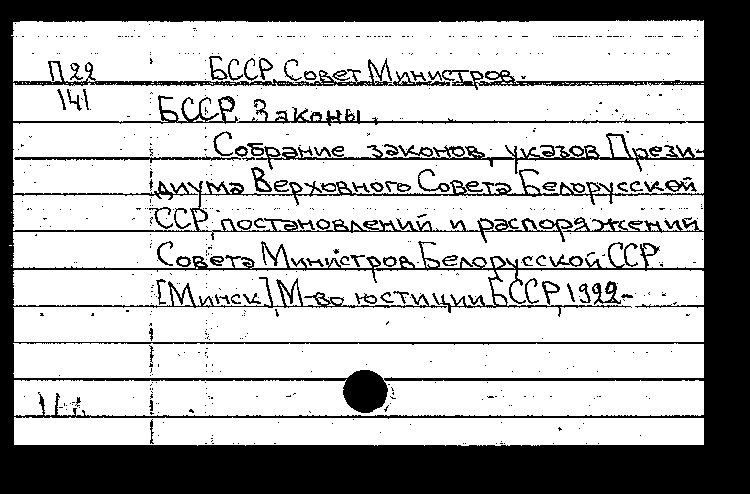 П22
141
БССР. Совет Министров.
БССР. Законы.
Собрание законов, указов Прези-
диума Верховного Совета Белорусской
ССР, постановлений и распоряжений
Совета Министров Белорусской ССР.
[Минск] М-во юстиции БССР, 1922-